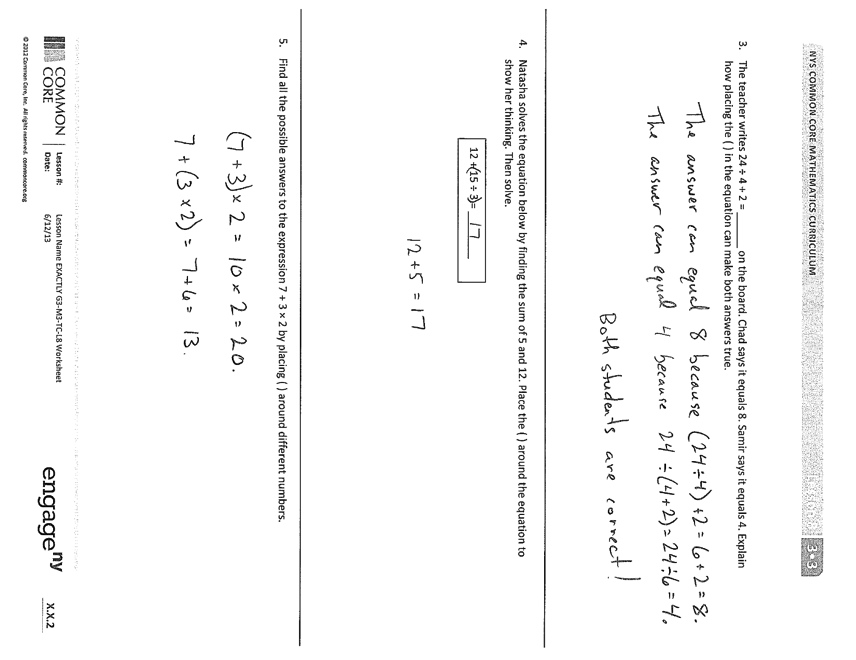 NYS COMMON CORE MATHEMATICS CURRICULUM
3•3
3. The teacher writes 24 ÷ 4 + 2 = ______ on the board. Chad says it equals 8. Samir says it equals 4. Explain
how placing the ( ) in the equation can make both answers true.
The answer can equal 8 because (24÷4)+2=6+2=8.
The answer can equal 4 because 24÷(4+2)=24÷6=4.
Both students are correct!
4. Natasha solves the equation below by finding the sum of 5 and 12. Place the ( ) around the equation to
show her thinking. Then solve.
12 +(15 ÷ 3)= 17
12+5=17
5. Find all the possible answers to the expression 7 + 3 × 2 by placing ( ) around different numbers.
(7+3)×2 = 10×2=20.
7+(3×2)= 7+6=13.
COMMON
CORE
Lesson #: Lesson Name EXACTLY G3-M3-TC-L8 Worksheet
Date: 6/12/13
engageny
X.X.2
© 2012 Common Core, Inc. All rights reserved. commoncore.org